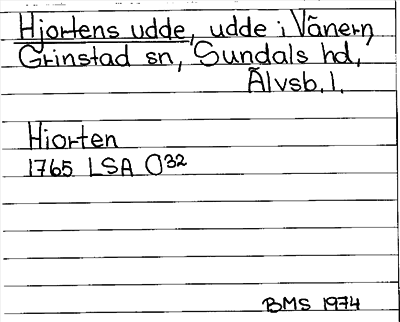 Hjortens udde, udde i Vänern,
Grinstad sn, Sundals hd,
Älvsb. l.
Hiorten
1765 LSA O32
BMS 1974